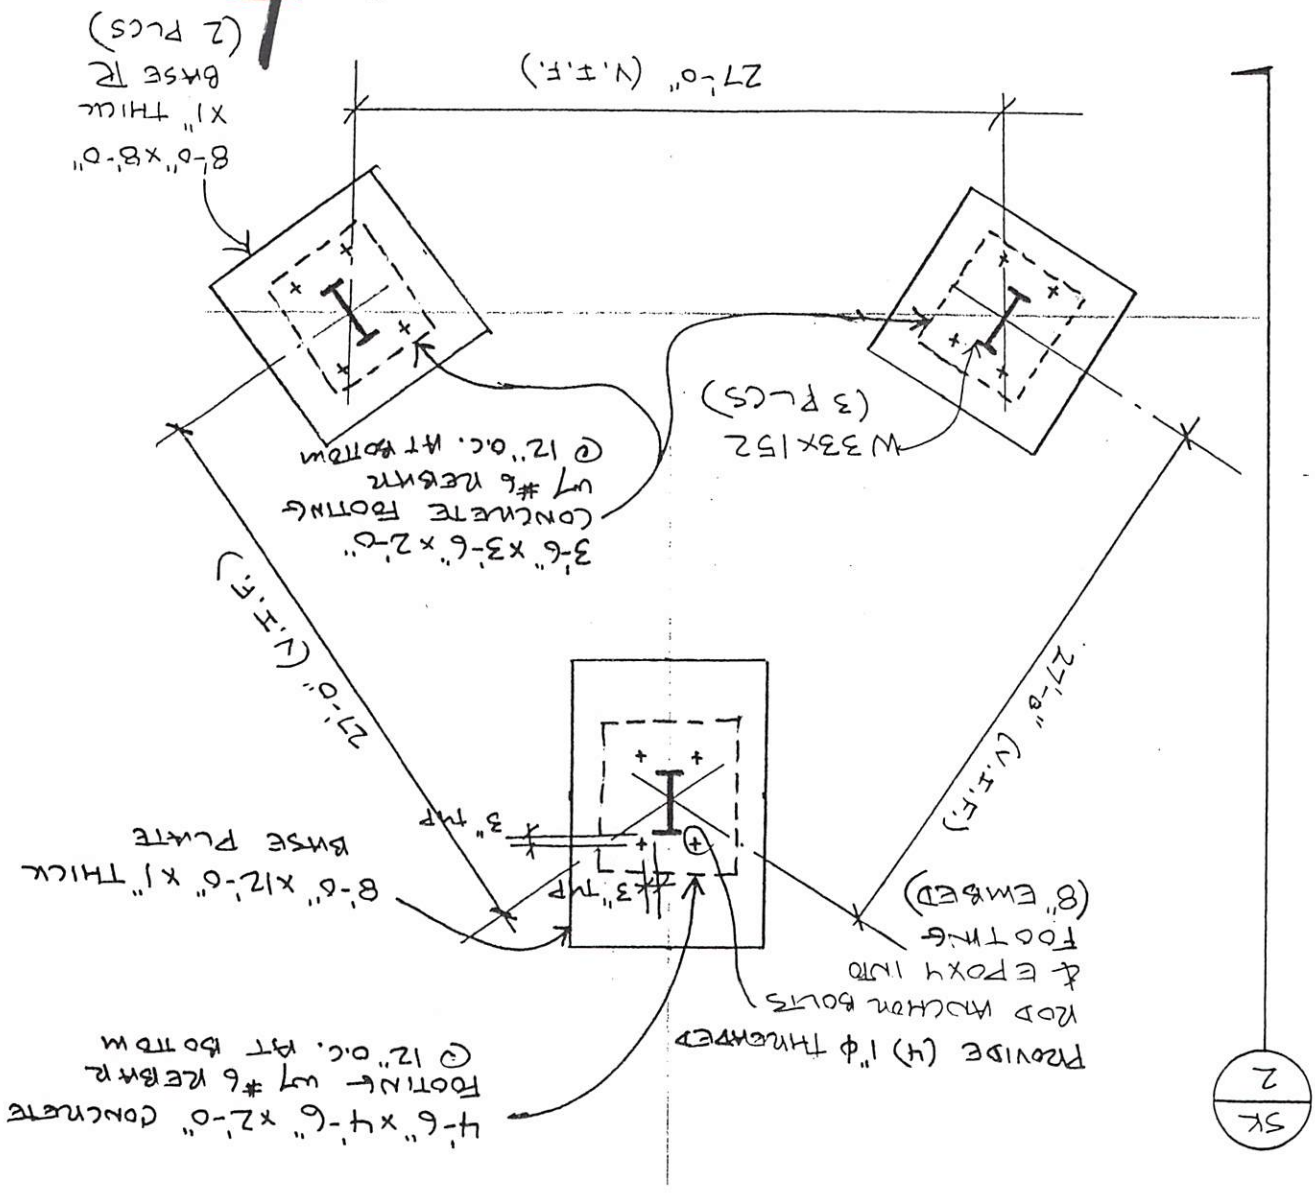 SK
2
4'-6" x 4'-6" x 2'-0" CONCRETE
FOOTING W/ #6 REBAR
@ 12" O.C. AT BOTTOM
PROVIDE (4) 1"φ THREADED
ROD ANCHOR BOLTS
& EPOXY INTO
FOOTING
(8" EMBED)
3" TYP
3" TYP
8'-0" x 12'-0" x 1" THICK
BASE PLATE
27'-0" (V.I.F.)
27'-0" (V.I.F.)
3'-6" x 3'-6" x 2'-0"
CONCRETE FOOTING
W/ #6 REBAR
@ 12" O.C. AT BOTTOM
W33x152
(3 PLCS)
27'-0" (V.I.F.)
8'-0" x 8'-0"
x 1" THICK
BASE PL
(2 PLCS)